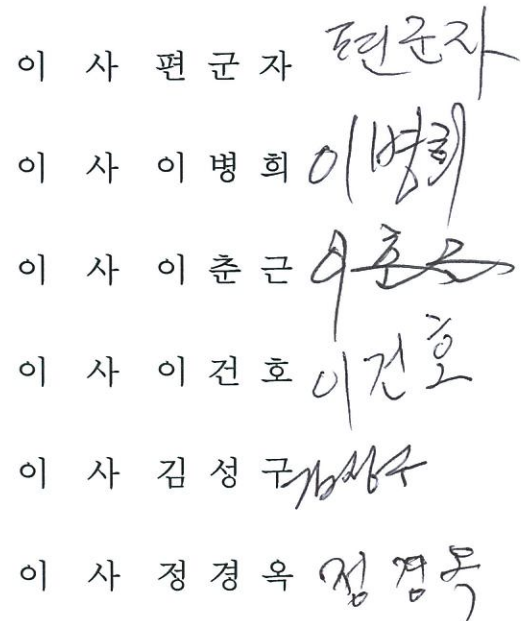 이 사 편 군 자 편군자
이 사 이 병 희 이병희
이 사 이 춘 근 이춘근
이 사 이 건 호 이건호
이 사 김 성 구 김성구
이 사 정 경 옥 정경옥